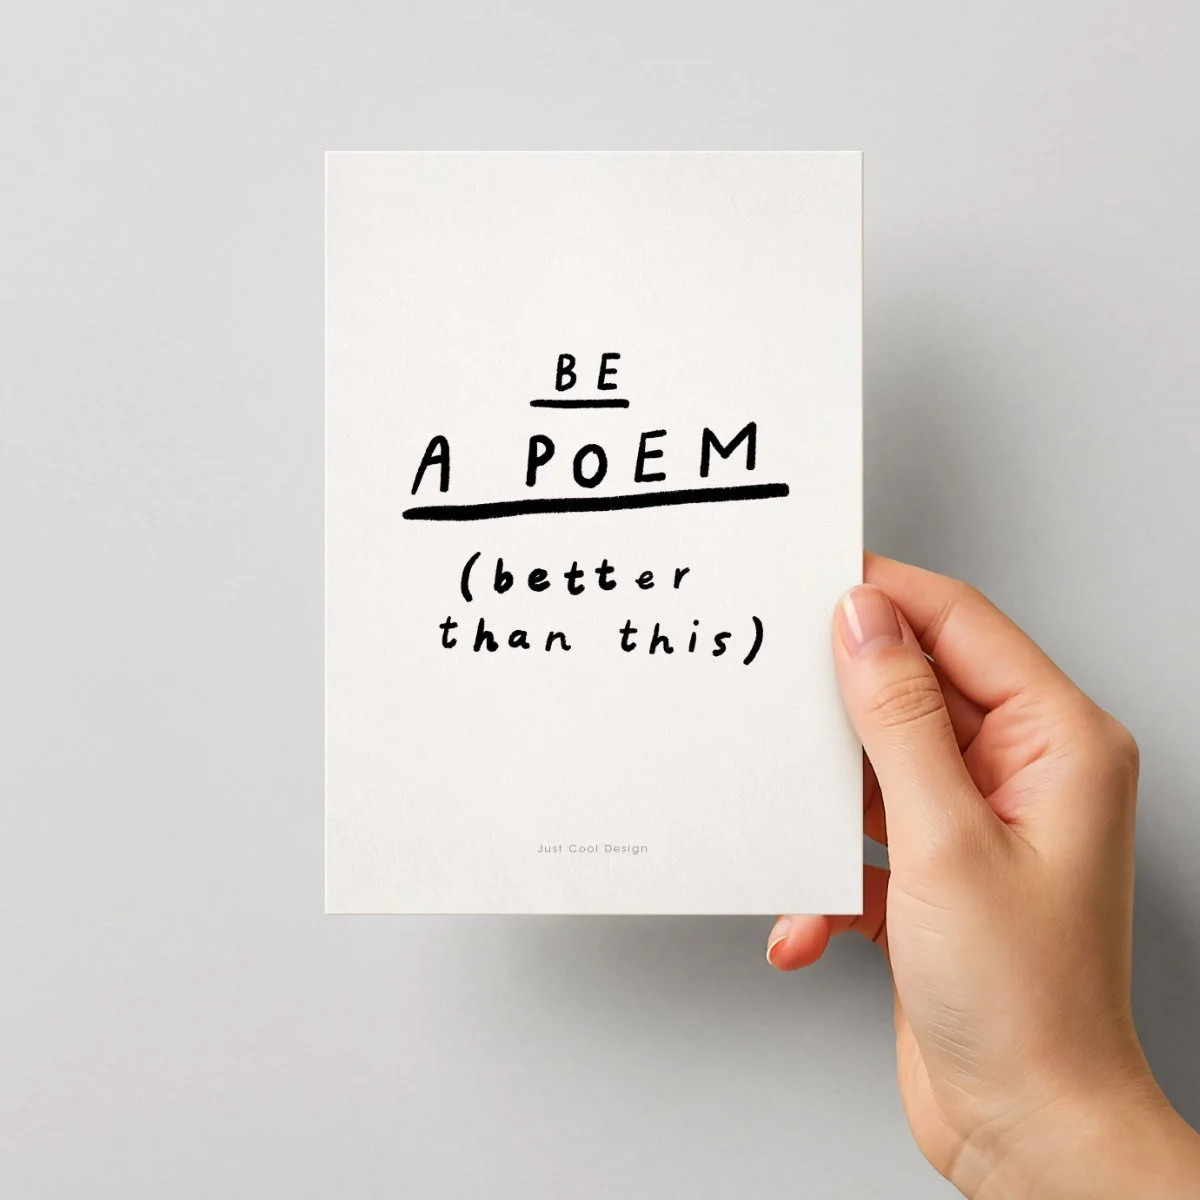 BE
A POEM
(better
than this)
Just Cool Design